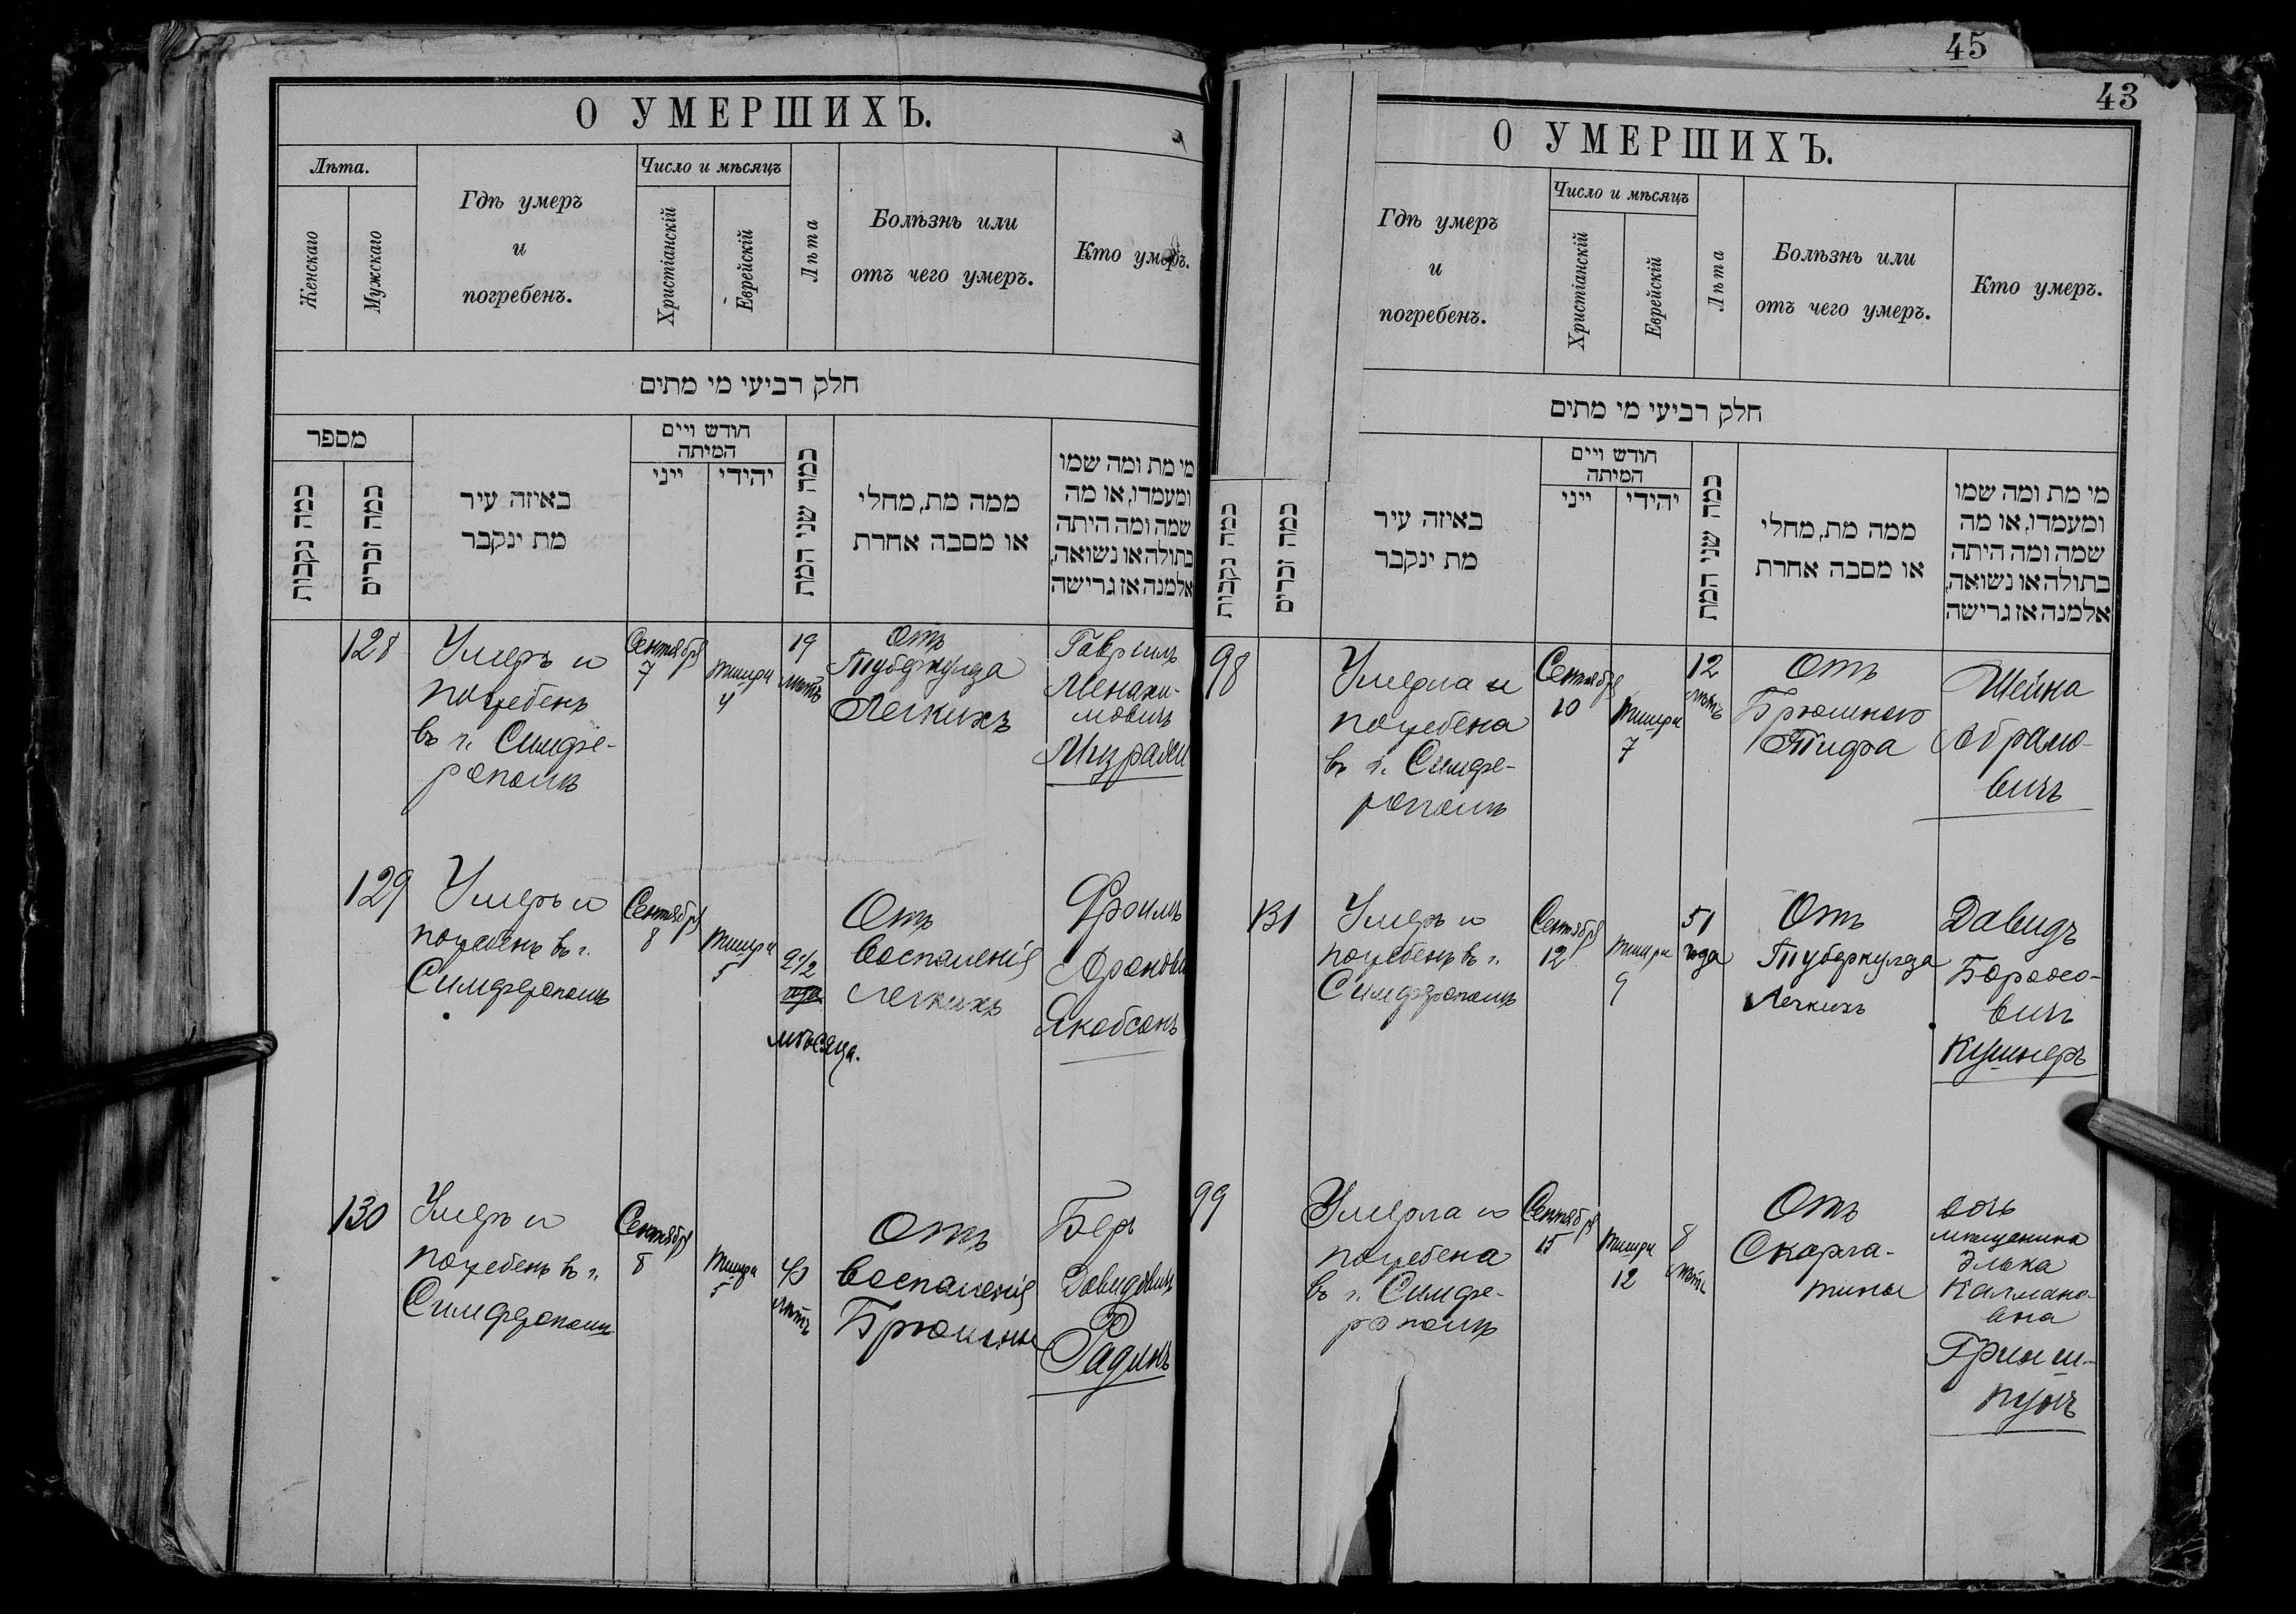 О УМЕРШИХЪ.
Лѣта.
Женскаго
Мужскаго
Гдѣ умеръ
и
погребенъ.
Число и мѣсяцъ
Христіанскій
Еврейскій
Лѣта
Болѣзнь или
отъ чего умеръ.
Кто умеръ.
חלק רביעי מי מתים
מספר
כמה נקבות
כמה זכרים
באיזה עיר
מת ינקבר
חודש ויים
המיתה
ייני
יהידי
כמה שני המת
ממה מת, מחלי
או מסבה אחרת
מי מת ומה שמו
ומעמדו, או מה
שמה ומה היתה
בתולה או נשואה,
אלמנה אז גרישה
128
Умеръ и
погребенъ
въ г. Симфе-
рополѣ
Сентября
7
Тишри
4
19
лѣтъ
Отъ
Туберкулеза
Легкихъ
Гаврiилъ
Менахи-
мовичъ
Мизрахи
129
Умеръ и
погребенъ въ г.
Симферополѣ
Сентября
8
Тишри
5
2 1/2
года
мѣсяца.
Отъ
Воспаленія
Легкихъ
Фроимъ
Ароновъ
Якобсонъ
130
Умеръ и
погребенъ въ г.
Симферополѣ
Сентября
8
Тишри
5
40
лѣтъ
Отъ
Воспаленія
Брюшины
Беръ
Давидовичъ
Радинъ
45
43
О УМЕРШИХЪ.
Гдѣ умеръ
и
погребенъ.
Число и мѣсяцъ
Христіанскій
Еврейскій
Лѣта
Болѣзнь или
отъ чего умеръ.
Кто умеръ.
חלק רביעי מי מתים
כמה נקבות
כמה זכרים
באיזה עיר
מת ינקבר
חודש ויים
המיתה
ייני
יהידי
כמה שני המת
ממה מת, מחלי
או מסבה אחרת
מי מת ומה שמו
ומעמדו, או מה
שמה ומה היתה
בתולה או נשואה,
אלמנה אז גרישה
98
Умерла и
погребена
въ г. Симфе-
рополѣ
Сентября
10
Тишри
7
12
лѣтъ
Отъ
Брюшного
Тифа
Шейна
Абрамо-
вичъ
131
Умеръ и
погребенъ въ г.
Симферополѣ
Сентября
12
Тишри
9
51
года
Отъ
Туберкулеза
Легкихъ
Давидъ
Борохо-
вичъ
Кушнеръ
99
Умерла и
погребена
въ г. Симфе-
рополѣ
Сентября
15
Тишри
12
8
лѣтъ
Отъ
Скарла-
тины
дочь
мѣщанина
Элька
Калмано-
вна
Гринш-
пунъ